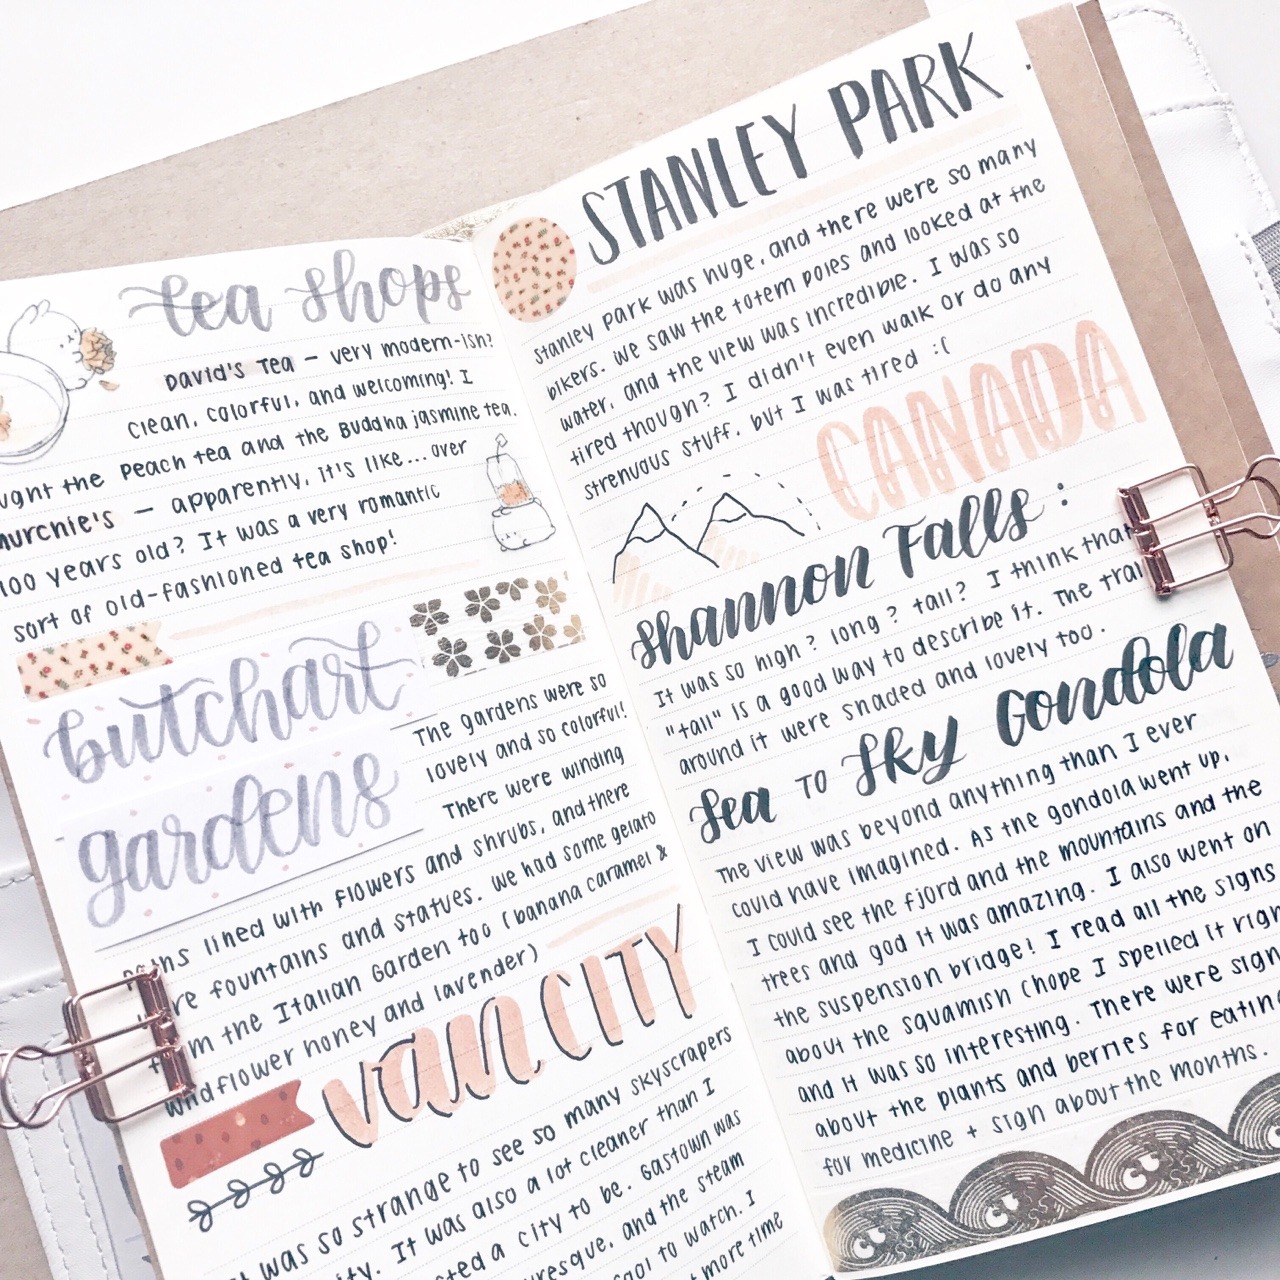 tea shops
David's Tea – very modern-ish?
clean, colorful, and welcoming! I
the peach tea and the Buddha jasmine tea.
murchie's – apparently, it's like... over
100 years old? It was a very romantic
sort of old-fashioned tea shop!
butchart
gardens
The gardens were so
lovely and so colorful!
There were winding
lined with flowers and shrubs, and there
fountains and statues. We had some gelato
the Italian Garden too (banana caramel &
wildflower honey and lavender)
van CITY
was so strange to see so many skyscrapers
It was also a lot cleaner than I
a city to be. Gastown was
and the steam
to watch. I
more time
STANLEY PARK
Stanley Park was huge, and there were so many
bikers. We saw the totem poles and looked at the
water, and the view was incredible. I was so
tired though? I didn't even walk or do any
strenuous stuff, but I was tired :(
CANADA
Shannon Falls:
It was so high? long? tall? I think that
"tall" is a good way to describe it. The trail
around it were shaded and lovely too.
Sea to Sky Gondola
The view was beyond anything than I ever
could have imagined. As the gondola went up,
I could see the fjord and the mountains and the
trees and god it was amazing. I also went on
the suspension bridge! I read all the signs
about the squamish (hope I spelled it right
and it was so interesting. There were sign
about the plants and berries for eating
for medicine + sign about the months.